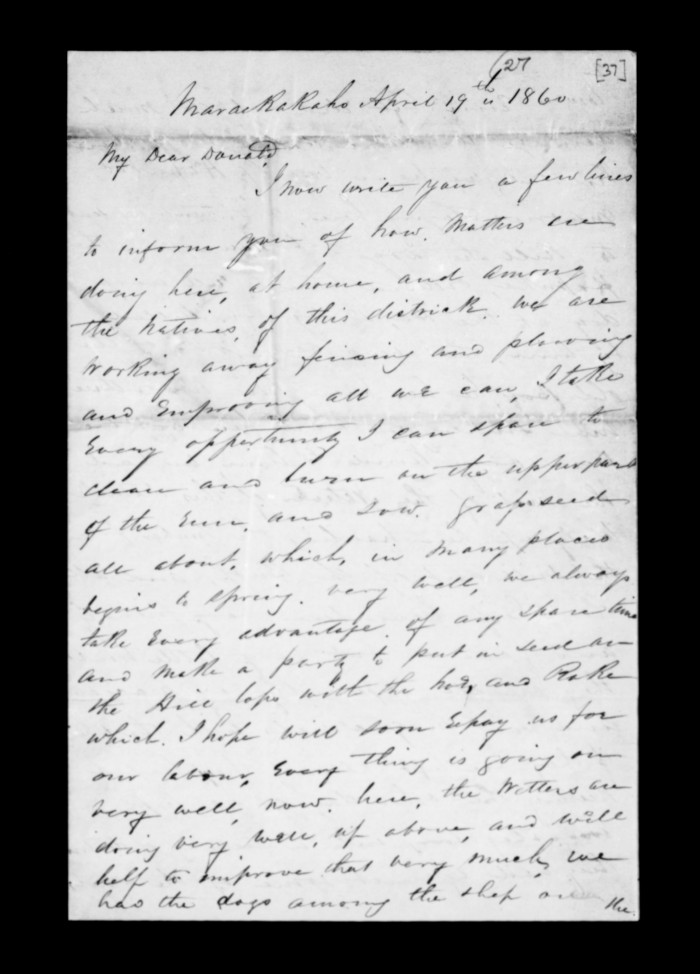 (27
[37]
Maraekakaho April 19th 1860
My Dear Donald
I now write you a few lines
to inform you of how. Matters are
doing here, at home, and among
the Natives, of this districk. We are
working away fencing and plowing
and Improving all we can, I take
Every opportunity I can spare to
clean and burn on the upper part
of the Run, and sow. grass seed
all about, which, in many places
begins to spring. very well, we always
take Every advantage. of any spare time
and make a party to put in seed on
the Hill tops with the hoe, and Rake
which. I hope will soon Repay us for
our labour, Every thing is going on
very well, now. here, the Wetters are
doing very well, up above, and will
help to improve that very much, we
has the dogs among the shep on
the.